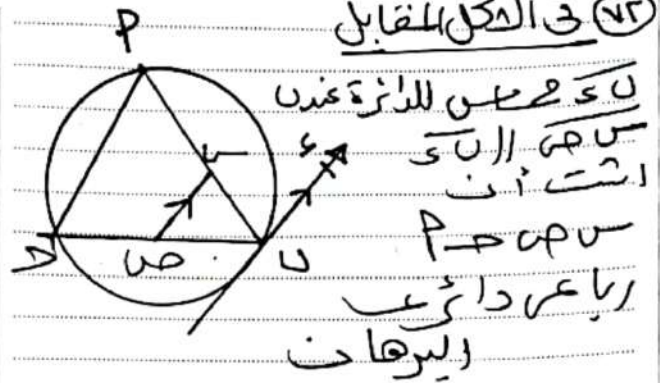 ٧٢ فى الشكل المقابل
بء مماس للدائرة عند ب
س ص // بء
اثبت أن
س ص حـ P
رباعى دائرى
البرهان
P
س
ء
حـ
ص
ب